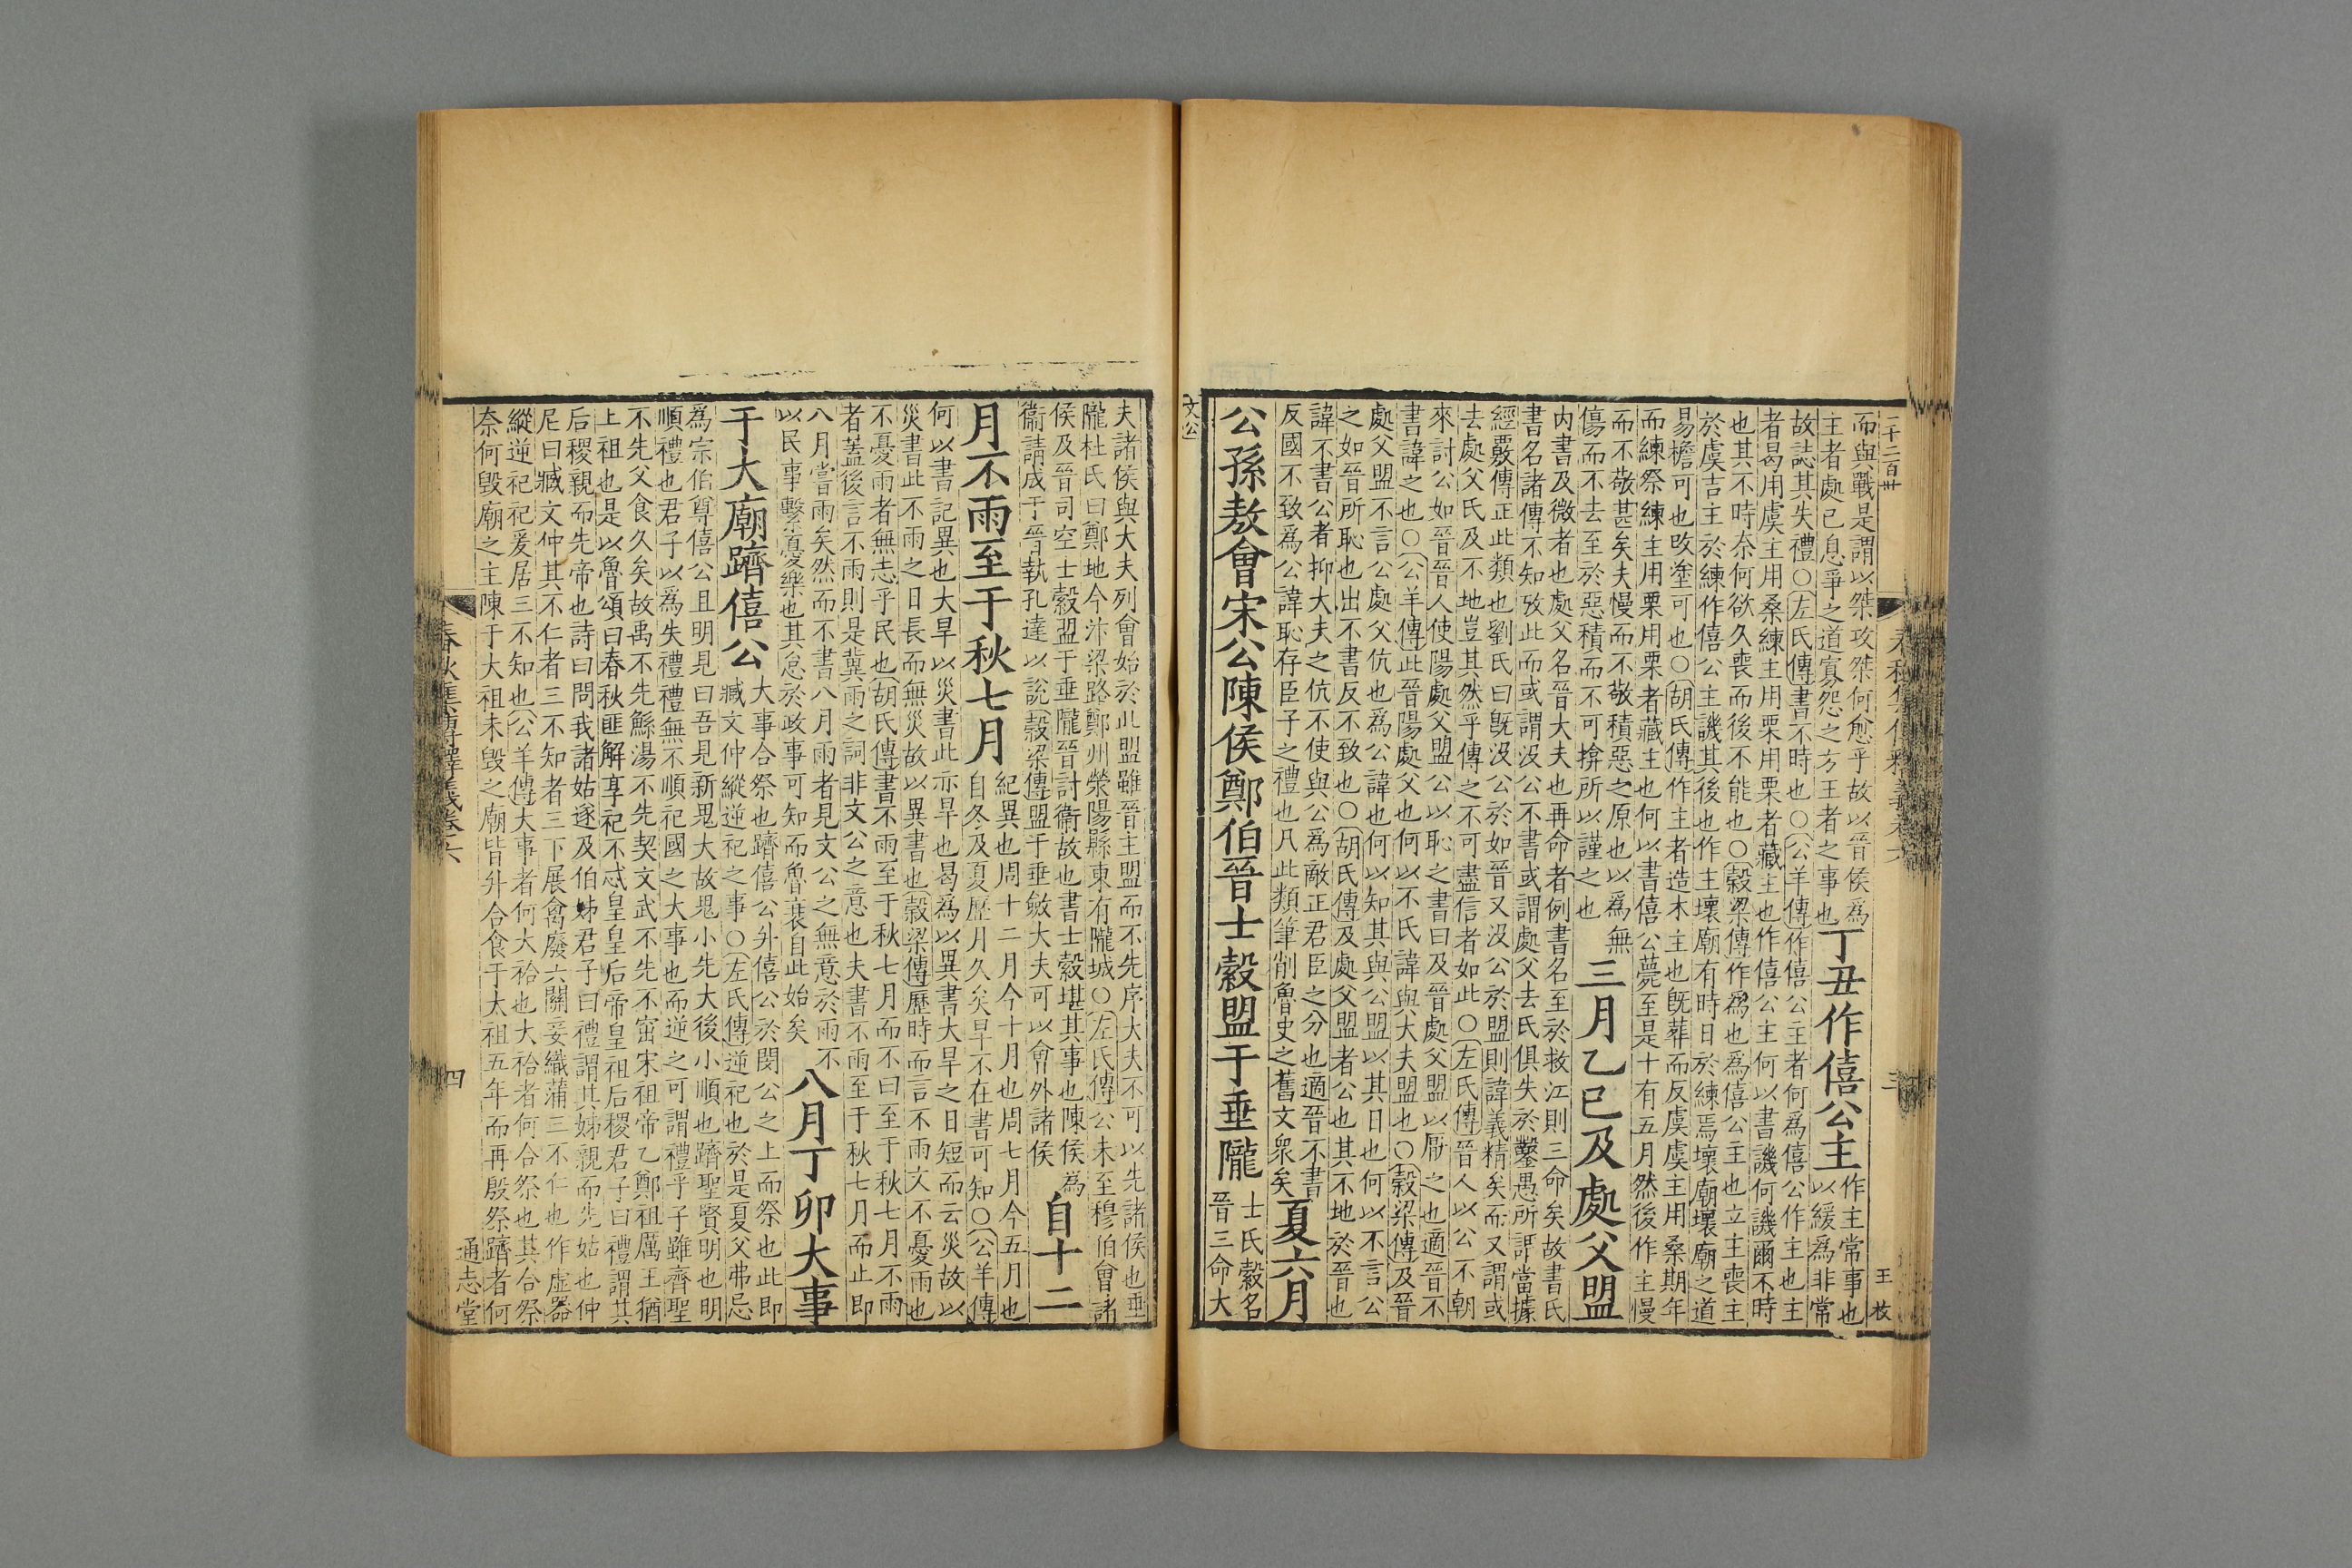 二千二百卌
春秋集傳釋義卷六
三
王 枚
而與戰是謂以桀攻桀何愈乎故以晉侯為
主者處己息爭之道寡怨之方王者之事也
丁丑作僖公主
作主常事也
以緩為非常
故誌其失禮○左氏傳書不時也○公羊傳作僖公主者何為僖公作主也主
者曷用虞主用桑練主用栗用栗者藏主也作僖公主何以書譏何譏爾不時
也其不時奈何欲久喪而後不能也○穀梁傳作為也為僖公主也立主喪主
於虞吉主於練作僖公主譏其後也作主壞廟有時日於練焉壞廟壞廟之道
易檐可也改塗可也○胡氏傳作主者造木主也既葬而反虞虞主用桑期年
而練祭練主用栗用栗者藏主也何以書僖公薨至是十有五月然後作主慢
而不敬甚矣夫慢而不敬積惡之原也以為無
傷而不去至於惡積而不可揜所以謹之也
三月乙巳及處父盟
内書及微者也處父名晉大夫也再命者例書名至於救江則三命矣故書氏
書名諸傳不知攷此而或謂沒公不書或謂處父去氏俱失於鑿愚所評當據
經覈傳正此類也劉氏曰既沒公於如晉又沒公於盟則諱義精矣而又謂或
去處父氏及不地豈其然乎傳之不可盡信者如此○左氏傳晉人以公不朝
來討公如晉晉人使陽處父盟公以恥之書曰及晉處父盟以厭之也適晉不
書諱之也○公羊傳此晉陽處父也何以不氏諱與大夫盟也○穀梁傳及晉
處父盟不言公處父伉也為公諱也何以知其與公盟以其日也何以不言公
之如晉所恥也出不書反不致也○胡氏傳及處父盟者公也其不地於晉也
諱不書公者抑大夫之伉不使與公為敵正君臣之分也適晉不書
反國不致為公諱恥存臣子之禮也凡此類筆削魯史之舊文衆矣
夏六月
公孫敖會宋公陳侯鄭伯晉士縠盟于垂隴
士氏縠名
晉三命大
文公
夫諸侯與大夫列會始於此盟雖晉主盟而不先序大夫不可以先諸侯也垂
隴杜氏曰鄭地今汴梁路鄭州滎陽縣東有隴城○左氏傳公未至穆伯會諸
侯及晉司空士縠盟于垂隴晉討衞故也書士縠堪其事也陳侯為
衞請成于晉執孔達以說穀梁傳盟于垂斂大夫可以會外諸侯
自十二
月不雨至于秋七月
紀異也周十二月今十月也周七月今五月也
自冬及夏歷月久矣旱不在書可知○公羊傳
何以書記異也大旱以災書此亦旱也曷為以異書大旱之日短而云災故以
災書此不雨之日長而無災故以異書也穀梁傳歷時而言不雨文不憂雨也
不憂雨者無志乎民也胡氏傳書不雨至于秋七月而不曰至于秋七月不雨
者蓋後言不雨則是冀雨之詞非文公之意也夫書不雨至于秋七月而止即
八月嘗雨矣然而不書八月雨者見文公之無意於雨不
以民事繫憂樂也其怠於政事可知而魯衰自此始矣
八月丁卯大事
于大廟躋僖公
大事合祭也躋僖公升僖公於閔公之上而祭也此即
臧文仲縱逆祀之事○左氏傳逆祀也於是夏父弗忌
為宗伯尊僖公且明見曰吾見新鬼大故鬼小先大後小順也躋聖賢明也明
順禮也君子以為失禮禮無不順祀國之大事也而逆之可謂禮乎子雖齊聖
不先父食久矣故禹不先鯀湯不先契文武不先不窋宋祖帝乙鄭祖厲王猶
上祖也是以魯頌曰春秋匪解享祀不忒皇皇后帝皇祖后稷君子曰禮謂其
后稷親而先帝也詩曰問我諸姑遂及伯姊君子曰禮謂其姊親而先姑也仲
尼曰臧文仲其不仁者三不知者三下展禽廢六關妾織蒲三不仁也作虛器
縱逆祀祀爰居三不知也公羊傳大事者何大祫也大祫者何合祭也其合祭
奈何毀廟之主陳于大祖未毀之廟皆升合食于太祖五年而再殷祭躋者何
春秋集傳釋義卷六
四
通志堂